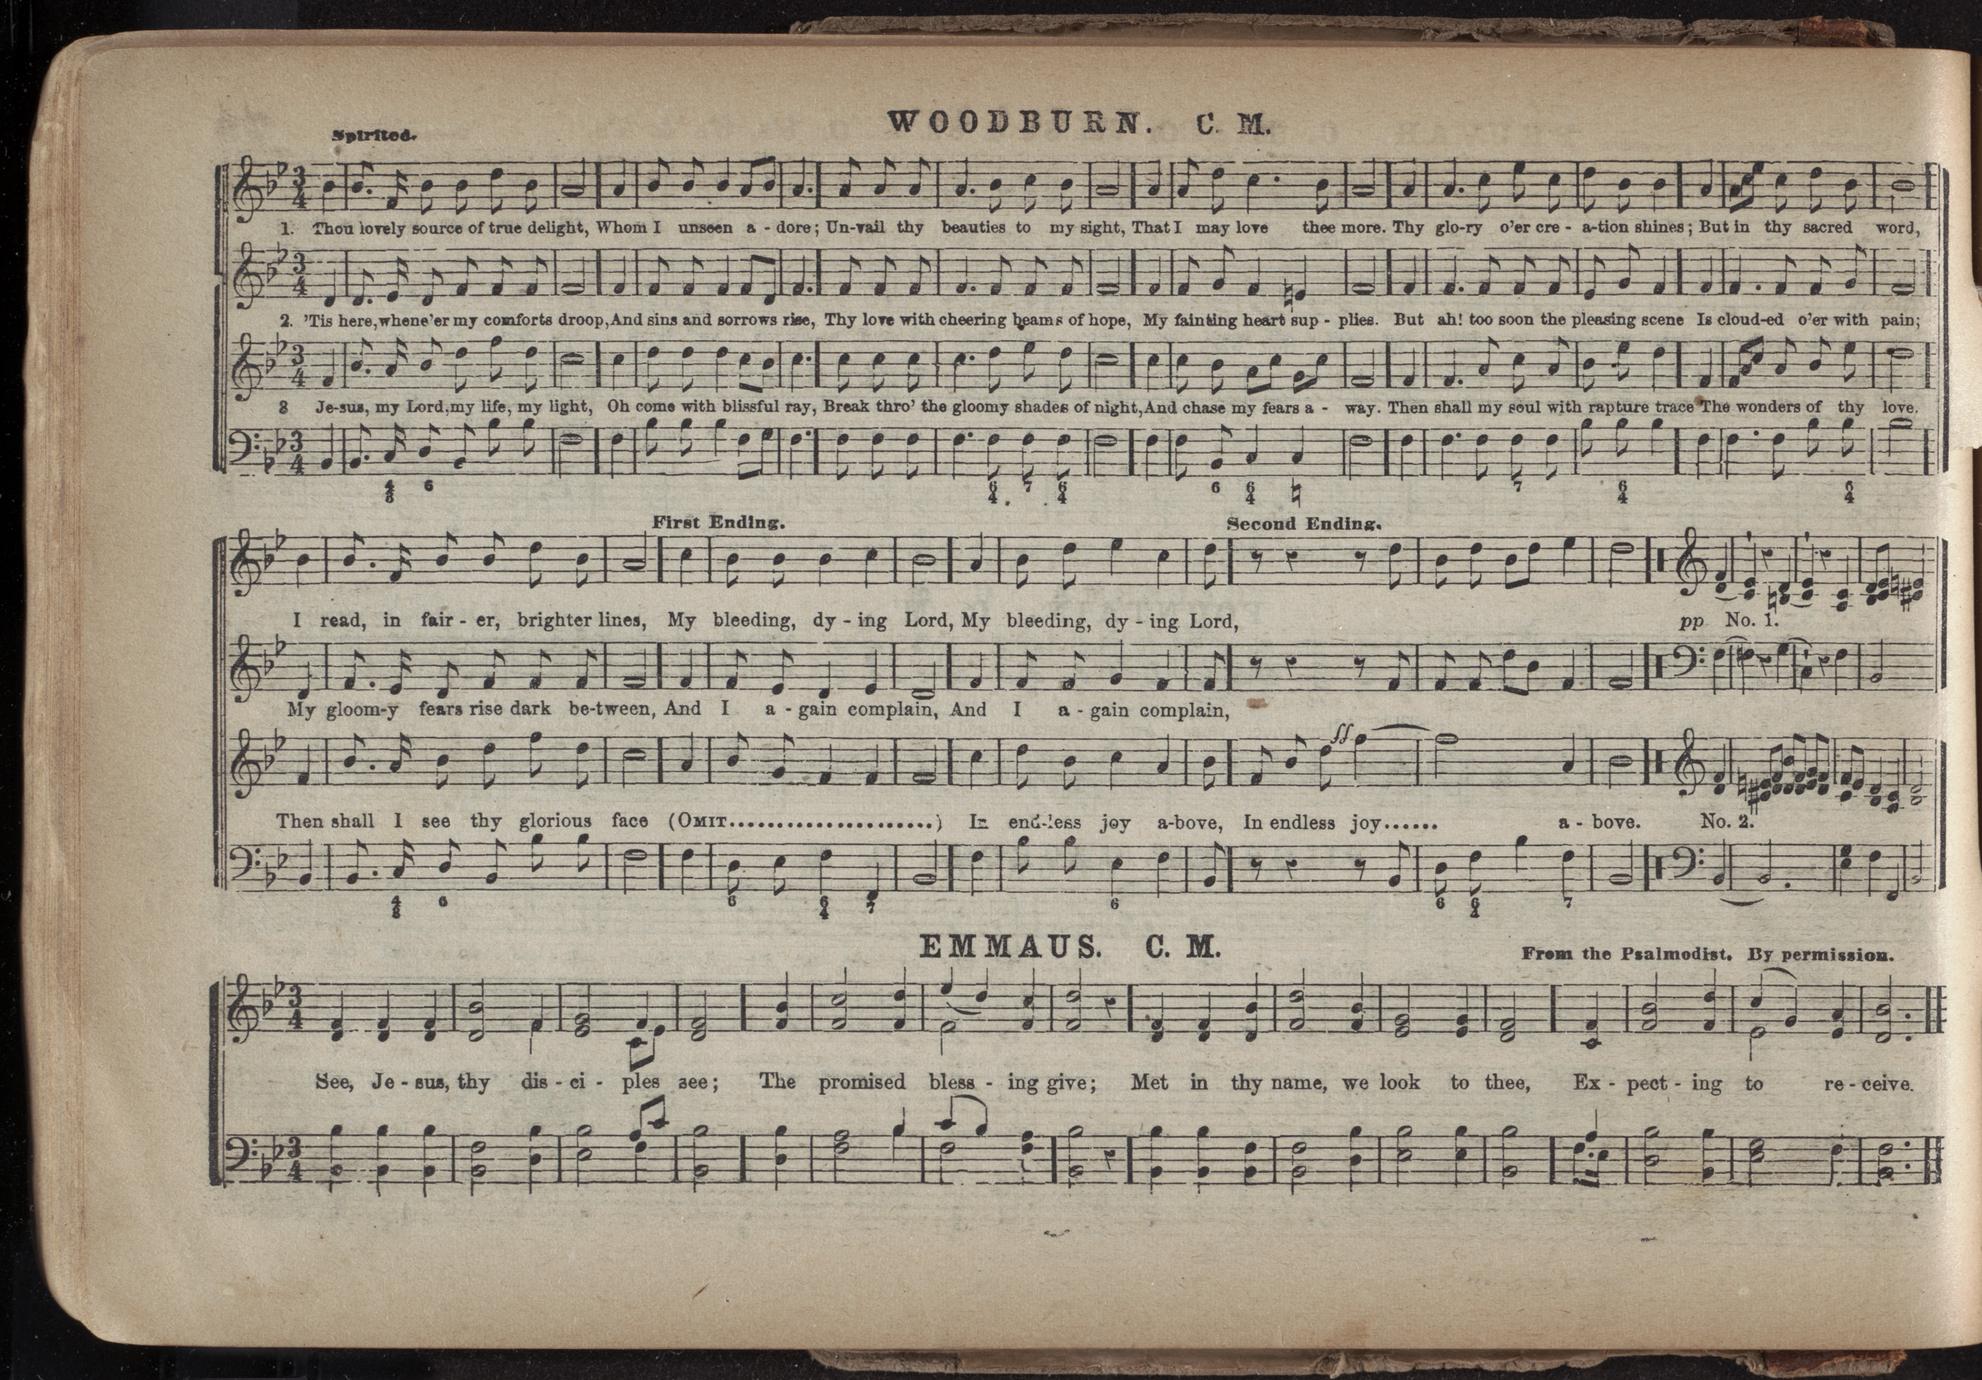 WOODBURN. C. M.
Spirited.
1. Thou lovely source of true delight, Whom I unseen a - dore; Un-vail thy beauties to my sight, That I may love thee more. Thy glo-ry o'er cre - a-tion shines; But in thy sacred word,
2. 'Tis here, whene'er my comforts droop, And sins and sorrows rise, Thy love with cheering beams of hope, My fainting heart sup - plies. But ah! too soon the pleasing scene Is cloud-ed o'er with pain;
3 Je-sus, my Lord, my life, my light, Oh come with blissful ray, Break thro' the gloomy shades of night, And chase my fears a - way. Then shall my soul with rapture trace The wonders of thy love.
First Ending. Second Ending.
I read, in fair - er, brighter lines, My bleeding, dy - ing Lord, My bleeding, dy - ing Lord,
pp No. 1.
My gloom-y fears rise dark be-tween, And I a - gain complain, And I a - gain complain,
ff
Then shall I see thy glorious face (OMIT.....................) In end-less joy a-bove, In endless joy...... a - bove. No. 2.
EMMAUS. C. M.
From the Psalmodist. By permission.
See, Je - sus, thy dis - ci - ples see; The promised bless - ing give; Met in thy name, we look to thee, Ex - pect - ing to re - ceive.